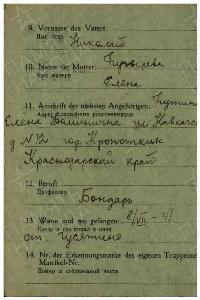 9. Vorname des Vaters:
Имя отца Николай
10. Name der Mutter:
Имя матери
Елена
11. Anschrift der nächsten Angehörigen:
Адрес ближайших родственников
Елена ул Кавказ
д N12 гор. Кропоткин
Краснодарский край
12. Beruf:
Профессия
Бондарь
13. Wann und wo gefangen: 8/VII - 41
Когда и где попал в плен
ст. Гусятино
14. Nr. der Erkennungsmarke des eigenen Truppente
Matrikel-Nr.
Номер и собственной части